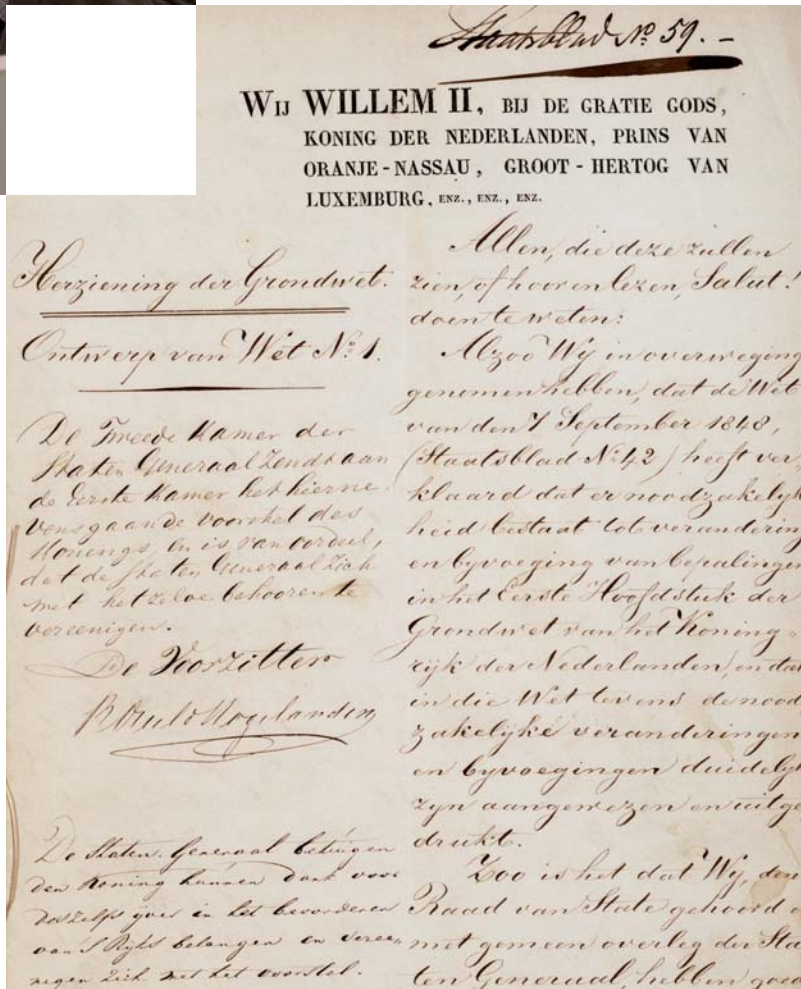 Staatsblad No 59. -
Wij WILLEM II, BIJ DE GRATIE GODS,
KONING DER NEDERLANDEN, PRINS VAN
ORANJE-NASSAU, GROOT-HERTOG VAN
LUXEMBURG, ENZ., ENZ., ENZ.
Herziening der Grondwet.
Ontwerp van Wet No. 1.
De Tweede Kamer der
Staten Generaal zendt aan
de Eerste Kamer het hierne
vens gaande voorstel des
Konings, en is van oordeel,
dat de Staten Generaal zich
met hetzelve behooren te
vereenigen.
De Voorzitter
De Staten-Generaal betuigen
den Koning hunnen dank voor
deszelfs ijver in het bevorderen
van 's Rijks belangen en veree-
nigen zich met het voorstel.
Allen, die deze zullen
zien, of hooren lezen, Salut!
doen te weten:
Alzoo Wij in overweging
genomen hebben, dat de Wet
van den 7 September 1848,
(Staatsblad No. 42) heeft ver,
klaard dat er noodzakelijk
heid bestaat tot verandering
en byvoeging van bepalingen
in het Eerste Hoofdstuk der
Grondwet van het Koning-
rijk der Nederlanden, en dat
in die Wet tevens de nood
zakelijke veranderingen
en byvoegingen duidelijk
zyn aangewezen en uitge
drukt.
Zoo is het dat Wy, den
Raad van State gehoord e
met gemeen overleg der Sta
ten Generaal, hebben goed